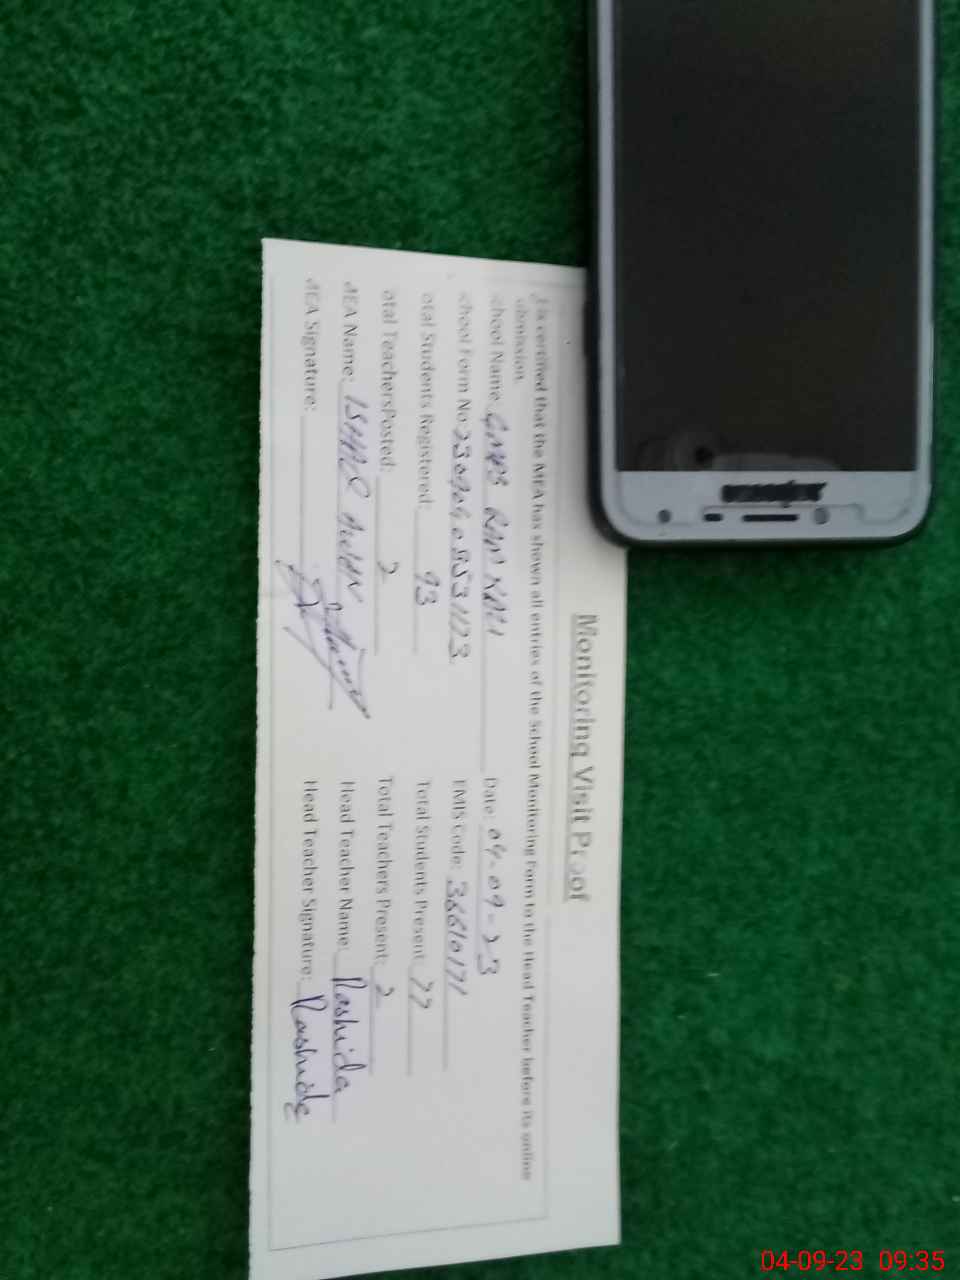 Monitoring Visit Proof
is certified that the MEA has shown all entries of the School Monitoring Form to the Head Teacher before its online
ubmission.
chool Name: GMPS Date: 04-09-23
chool Form No: EMIS Code: 36610171
otal Students Registered: 93 Total Students Present: 77
otal Teachers Posted: 2 Total Teachers Present: 2
MEA Name: ISHAQ AWAN Head Teacher Name: Rashida
MEA Signature: Head Teacher Signature: Rashida
SAMSUNG
04-09-23 09:35